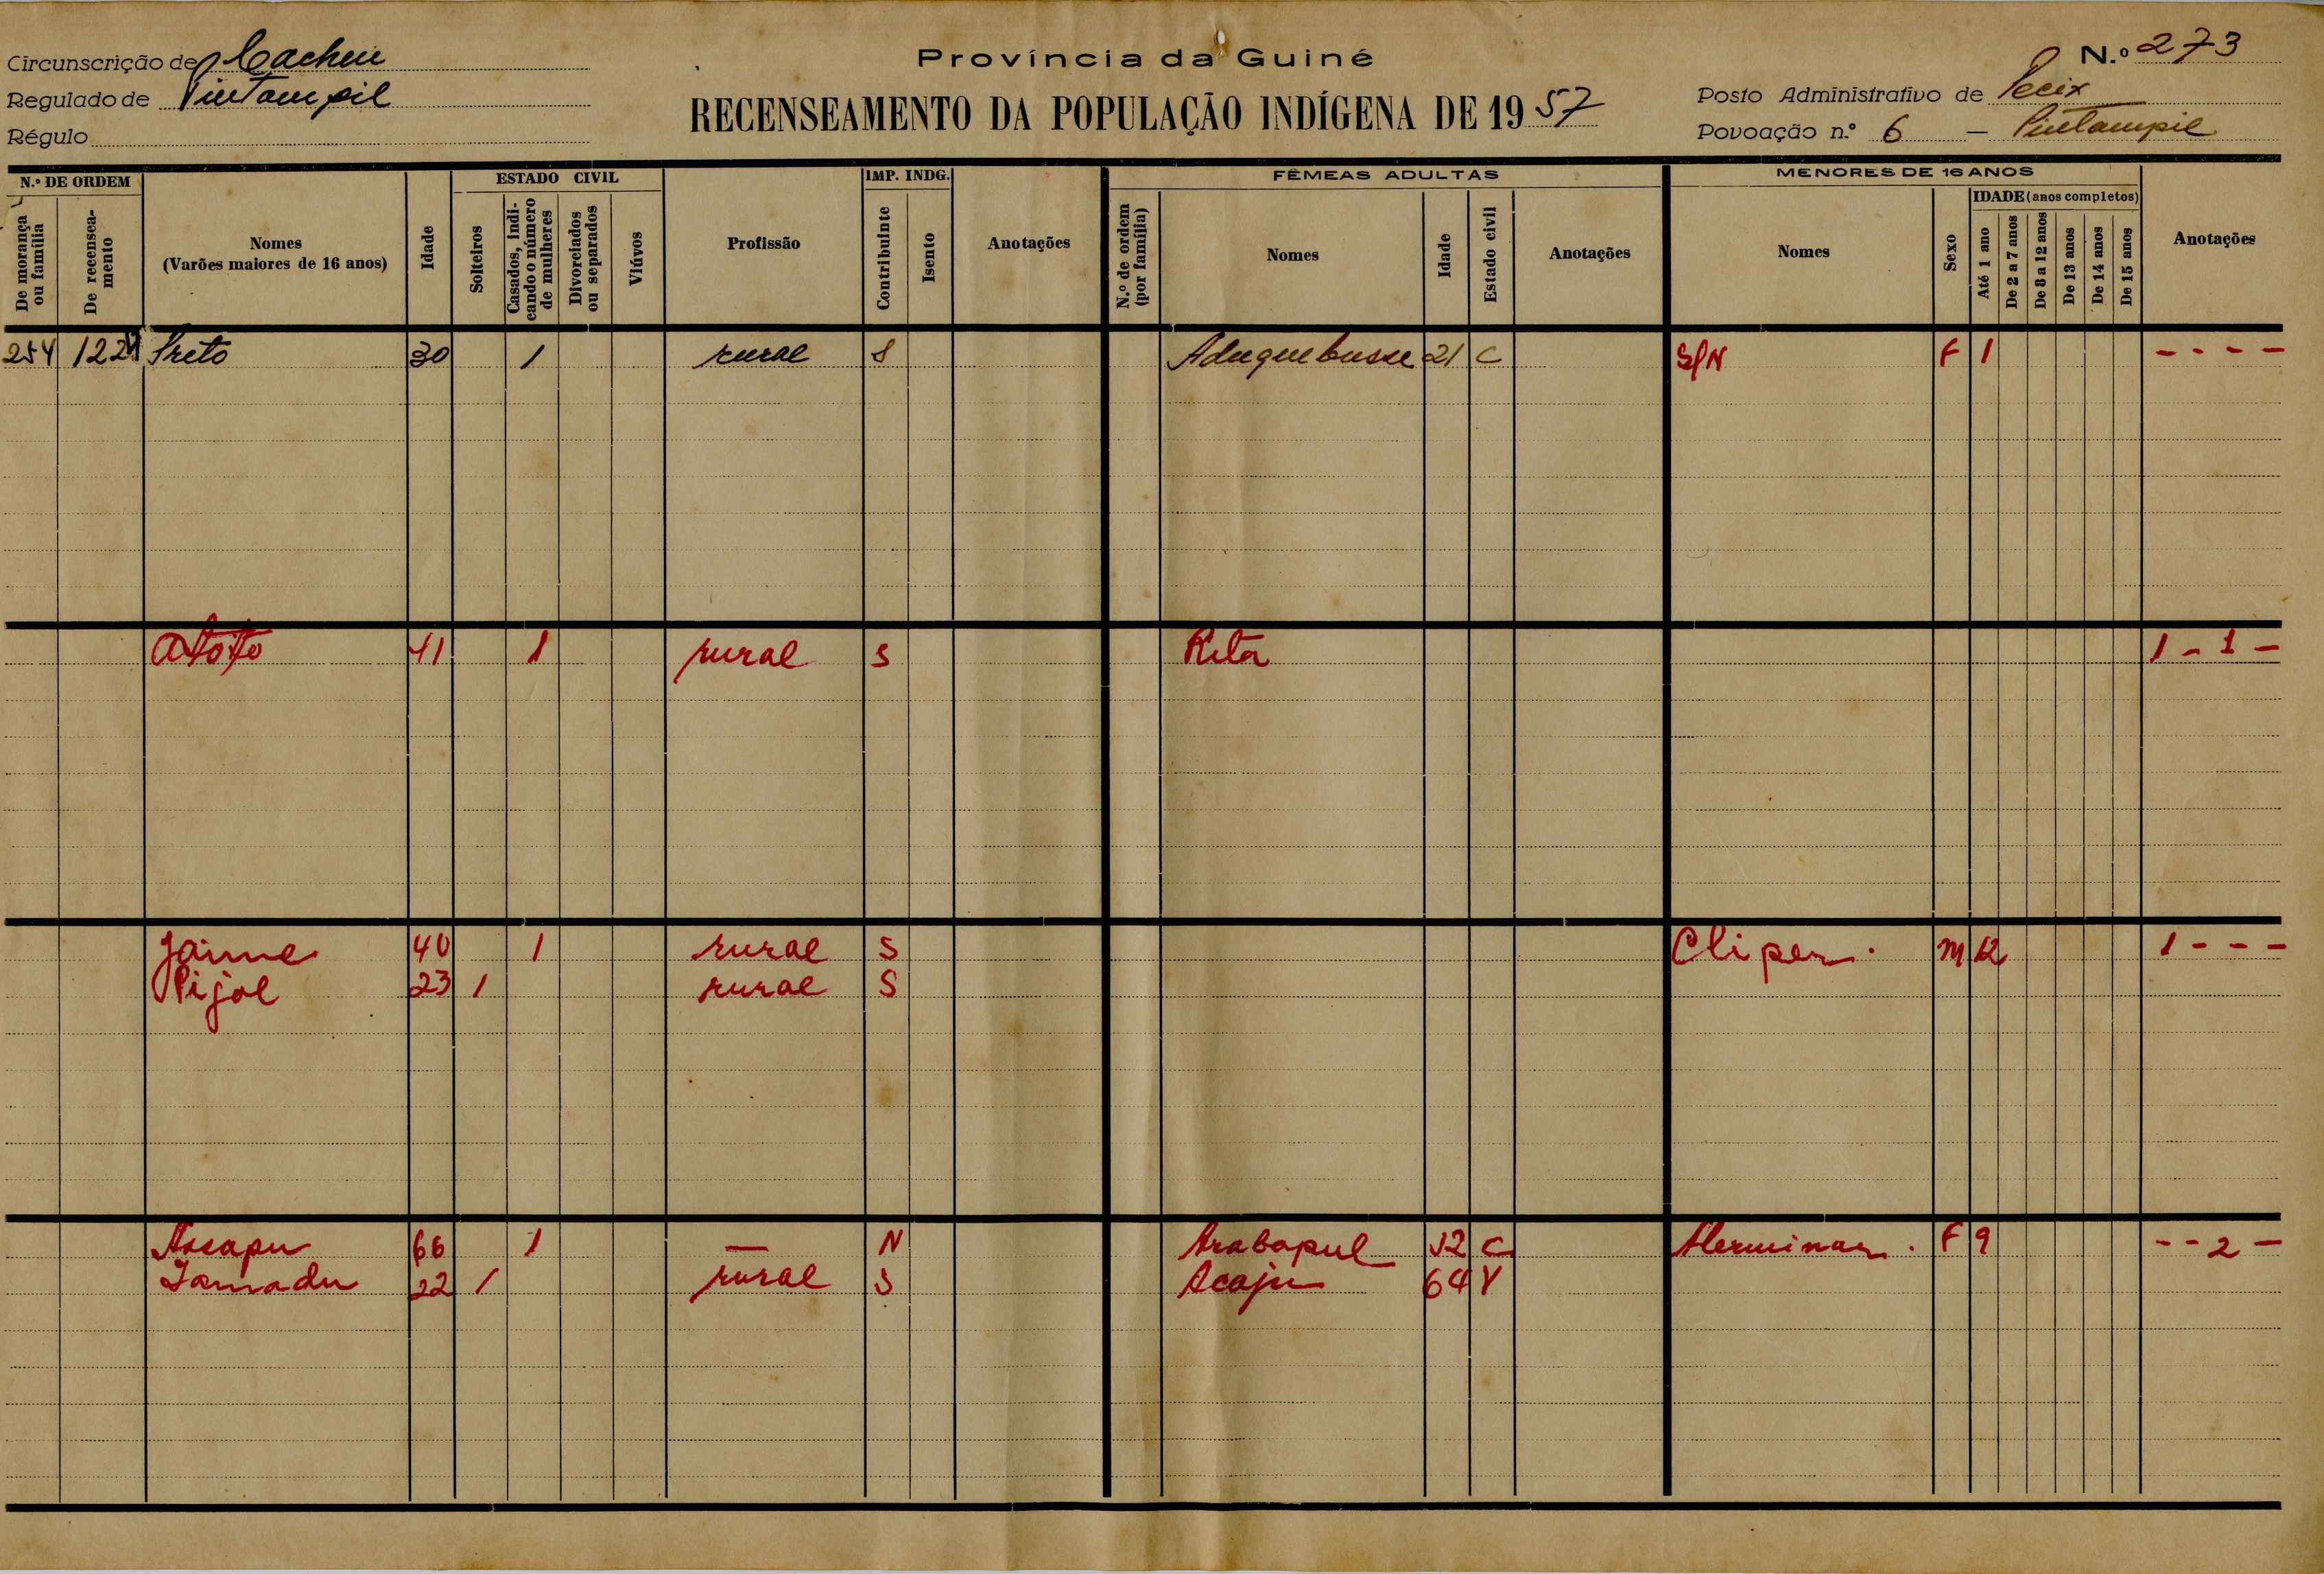 Circunscrição de Cacheu
Regulado de Pintampil
Régulo
Província da Guiné
RECENSEAMENTO DA POPULAÇÃO INDÍGENA DE 1957
N.º 273
Posto Administrativo de Pecix
Povoação n.º 6 — Pintampil
N.º DE ORDEM
De morança ou família
De recenseamento
Nomes
(Varões maiores de 16 anos)
Idade
ESTADO CIVIL
Solteiros
Casados, indicando o número de mulheres
Divorciados ou separados
Viúvos
Profissão
IMP. INDG.
Contribuinte
Isento
Anotações
FÊMEAS ADULTAS
N.º de ordem (por família)
Nomes
Idade
Estado civil
Anotações
MENORES DE 16 ANOS
Nomes
Sexo
IDADE (anos completos)
Até 1 ano
De 2 a 7 anos
De 8 a 12 anos
De 13 anos
De 14 anos
De 15 anos
Anotações
254 1224 Preto 30 1 rural S Aduquebusse 21 C S/N F 1 - - - -
Atoto 41 1 rural S Rita 1 - 1 -
Jaime 40 1 rural S Cliper. M 12 1 - - -
Pijol 23 1 rural S
66 1 — N Arabapul 52 C F 9 - - 2 -
Iamadu 22 1 rural S Acaju 64 V